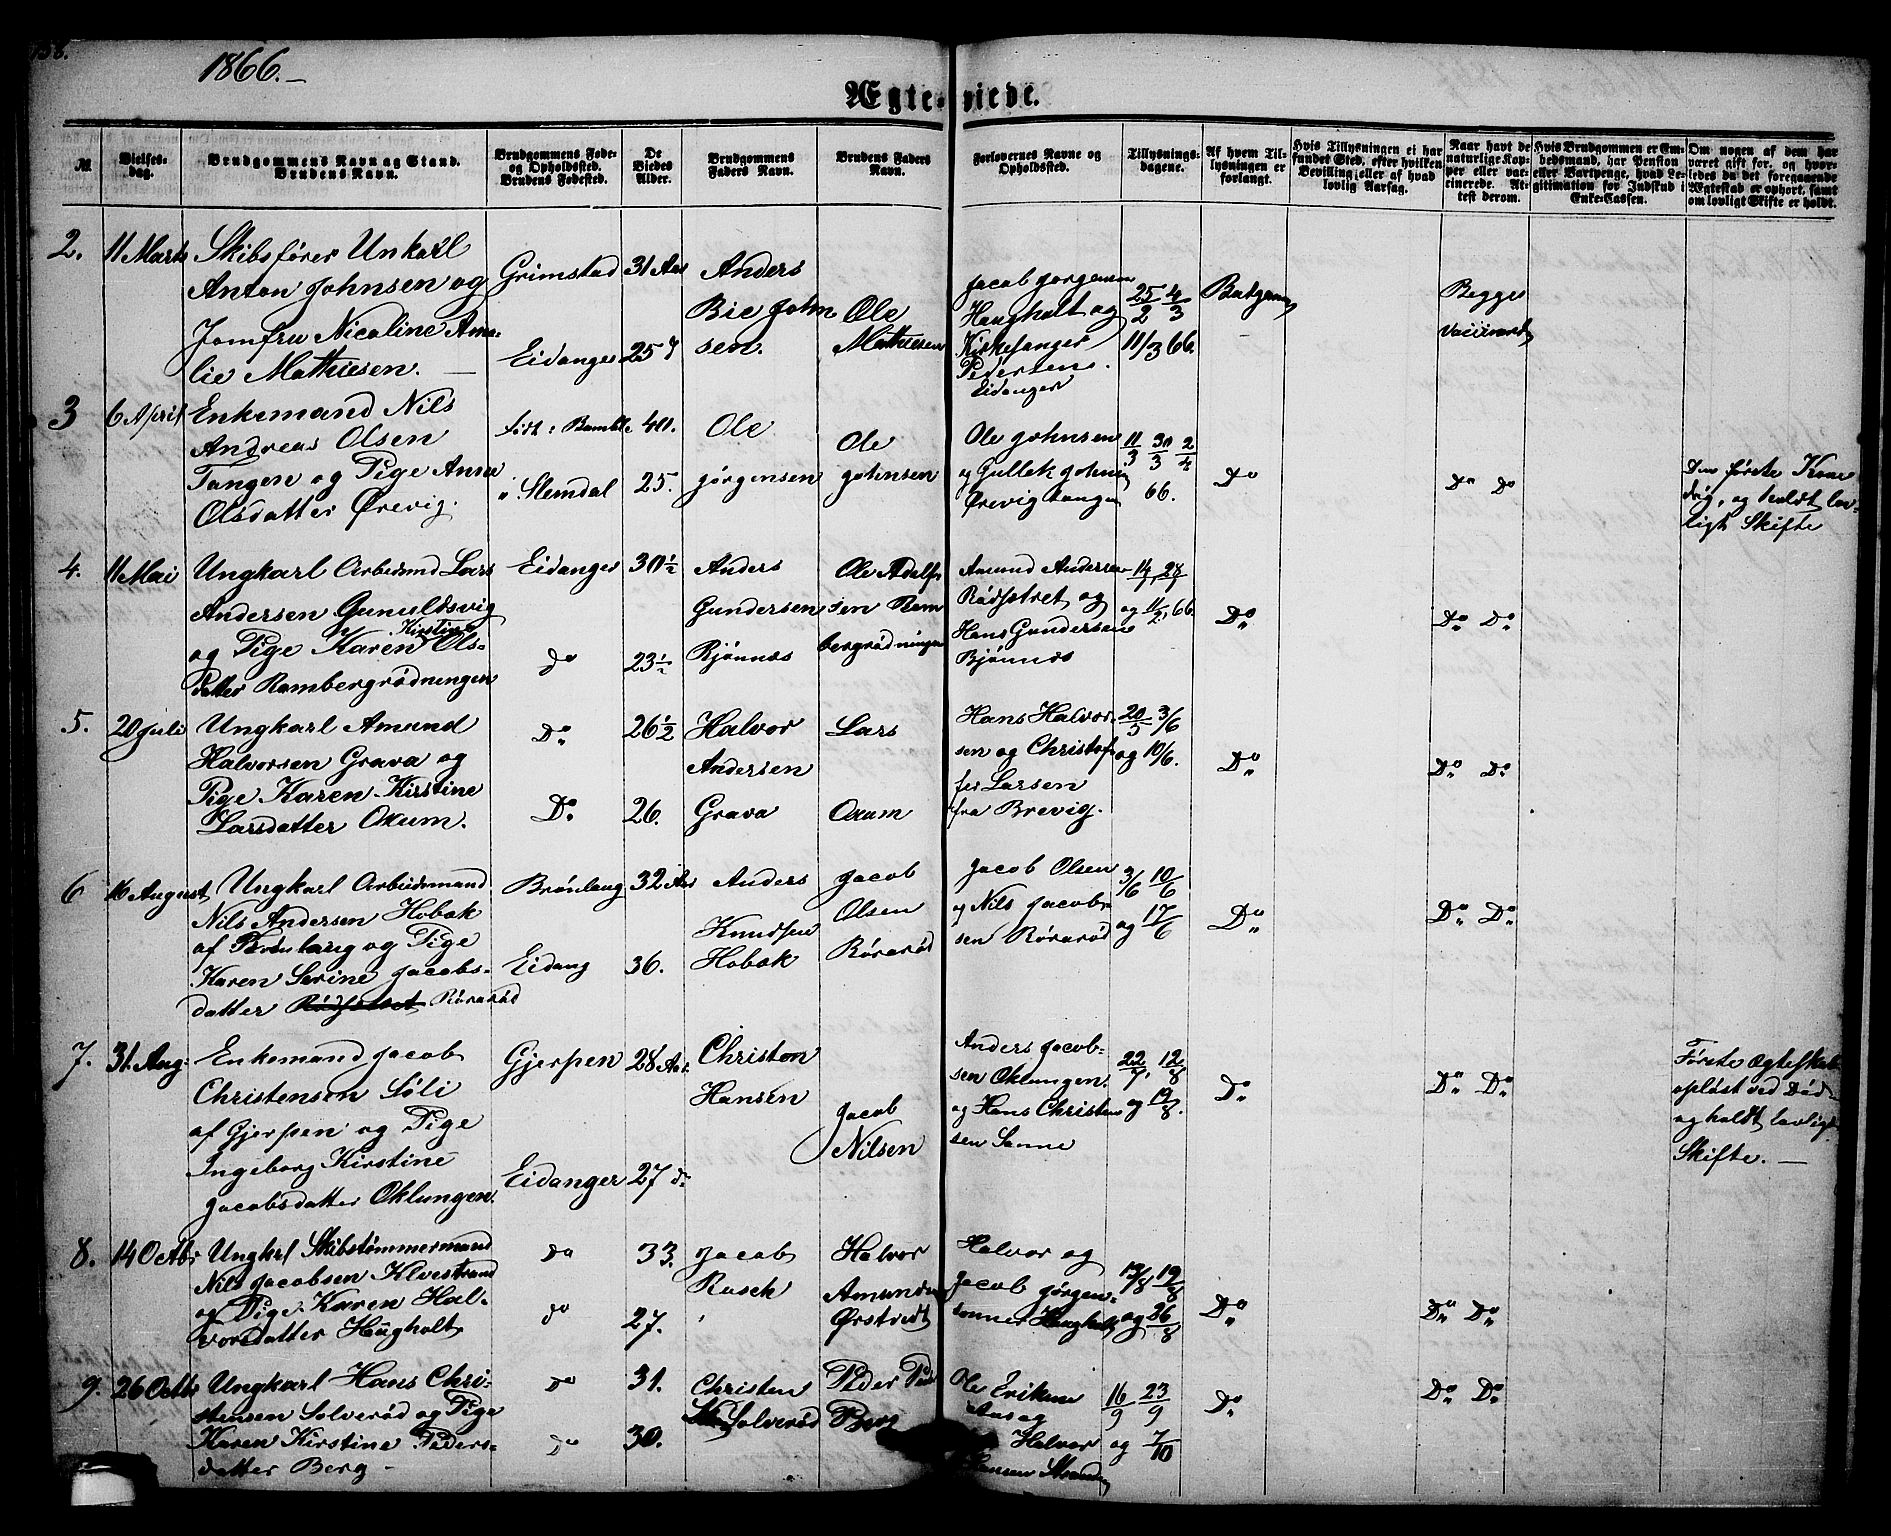 1866.
Ægteviede.
№
Vielses-
dag.
Brudgommens Navn og Stand.
Brudens Navn.
Brudgommens Føde-
og Opholdssted.
Brudens Fødested.
De
Viedes
Alder.
Brudgommens
Faders Navn.
Brudens Faders
Navn.
Forlovernes Navne og
Opholdssted.
Tillysnings-
dagene.
Af hvem Til-
lysningen er
forlangt.
Hvis Tillysningen ei har
fundet Sted, efter hvilken
Bevilling, eller af hvad
lovlig Aarsag.
Naar havt de
naturlige Kop-
per eller vac-
cinerede. At-
test derom.
Hvis Brudgommen er Em-
bedsmand, har Pension
eller Vartpenge, hvad Le-
gitimation for Indskud i
Enke-Cassen.
Om nogen af dem har
været gift for, og hvor-
ledes da det foregaaende
Ægteskab er ophørt, samt
om lovligt Skifte er holdt.
2.
11 Marts
Skibsfører Unkarl
Anton Johnsen og
Jomfru Nicoline Ama-
lie Mathiesen.
Grimstad
Eidanger
31 Aar
25
Anders
Bie John
sen.
Ole
Mathiesen
Jacob Jorgensen
Haugholt og
Kirkesanger
Pedersens.
Eidanger
25/2 4/3
11/3 66.
Brudgommen
Begge
vaccinerede
3
6 April
Enkemand Nils
Andreas Olsen
Tangen og Pige Anne
Olsdatter Ørevig.
født i Bamble
i Slemdal
40.
25.
Ole
Jørgensen
Ole
Johnsen
Ole Johnsen
og Gullek Johnsen
Ørevig tangen
11/3 30/3 2/4
66.
Do
Do Do
Den første Kone
død, og holdt lov-
ligt Skifte
4.
11 Mai
Ungkarl Arbeidsmand Lars
Andersen Gunuldsvig
og Pige Karen Kirstine Ols-
datter Rambergrødningen
Eidanger
do
30½
23½
Anders
Gundersen
Bjønnes
Ole Adolf
sen Ram
bergrødningen
Amund Andersen
Rødsstret og
Hans Gundersen
Bjønnes
14/1, 28/1
og 11/2, 66
Do
Do Do
5.
20 Juli
Ungkarl Amund
Halvorsen Grava og
Pige Karen Kirstine
Larsdatter Oxum.
Do
Do
26½
26.
Halvor
Andersen
Grava
Lars
Oxum
Hans Halvor-
sen og Christof-
fer Larsen
fra Brevig.
20/5 3/6
og 10/6.
Do
Do Do
6
16 August
Ungkarl Arbeidsmand
Nils Andersen Hobæk
af Brønlang og Pige
Karen Serine Jacobs-
datter Rørarød
Brønlang
Eidang
32 Aar
36.
Anders
Knudsen
Hobæk
Jacob
Olsen
Rørarød
Jacob Olsen
og Nils Jacob-
sen Rørarød
3/6 10/6
og 17/6
Do
Do Do
7.
31. Aug:
Enkemand Jacob
Christensen Søli
af Gjerpen og Pige
Ingeborg Kirstine
Jacobsdatter Oklungen.
Gjerpen
Eidanger
28 Aar.
27 do
Christen
Hansen
Jacob
Nilsen
Anders Jacob-
sen Oklungen.
og Hans Christen
sen Sanne
22/7, 12/8
og 19/8.
Do
Do Do
Første Ægteskab
opløst ved Død
og holdt lovligt
Skifte.
8.
14 Octbr
Ungkarl Skibstømmermand
Nils Jacobsen Klvestrand
og Pige Karen Hal-
vorsdatter Haugholt
do
do
33.
27.
Jacob
Rasch
Halvor
Amundsen
Ørstvedt
Halvor og
Jacob Jørgen-
sønner Haugholt
13/8 19/8
og 26/8
Do
Do Do
9.
26 Octbr
Ungkarl Hans Chri-
stensen Solverød og Pige
Karen Kirstine Peders-
datter Berg
do
do
31.
30.
Christen
Solverød
Peder Ped
Berg
Ole Eriksen
Aas og
Halvor
Hansen Strand
16/9 23/9
og 7/10
Do
Do Do